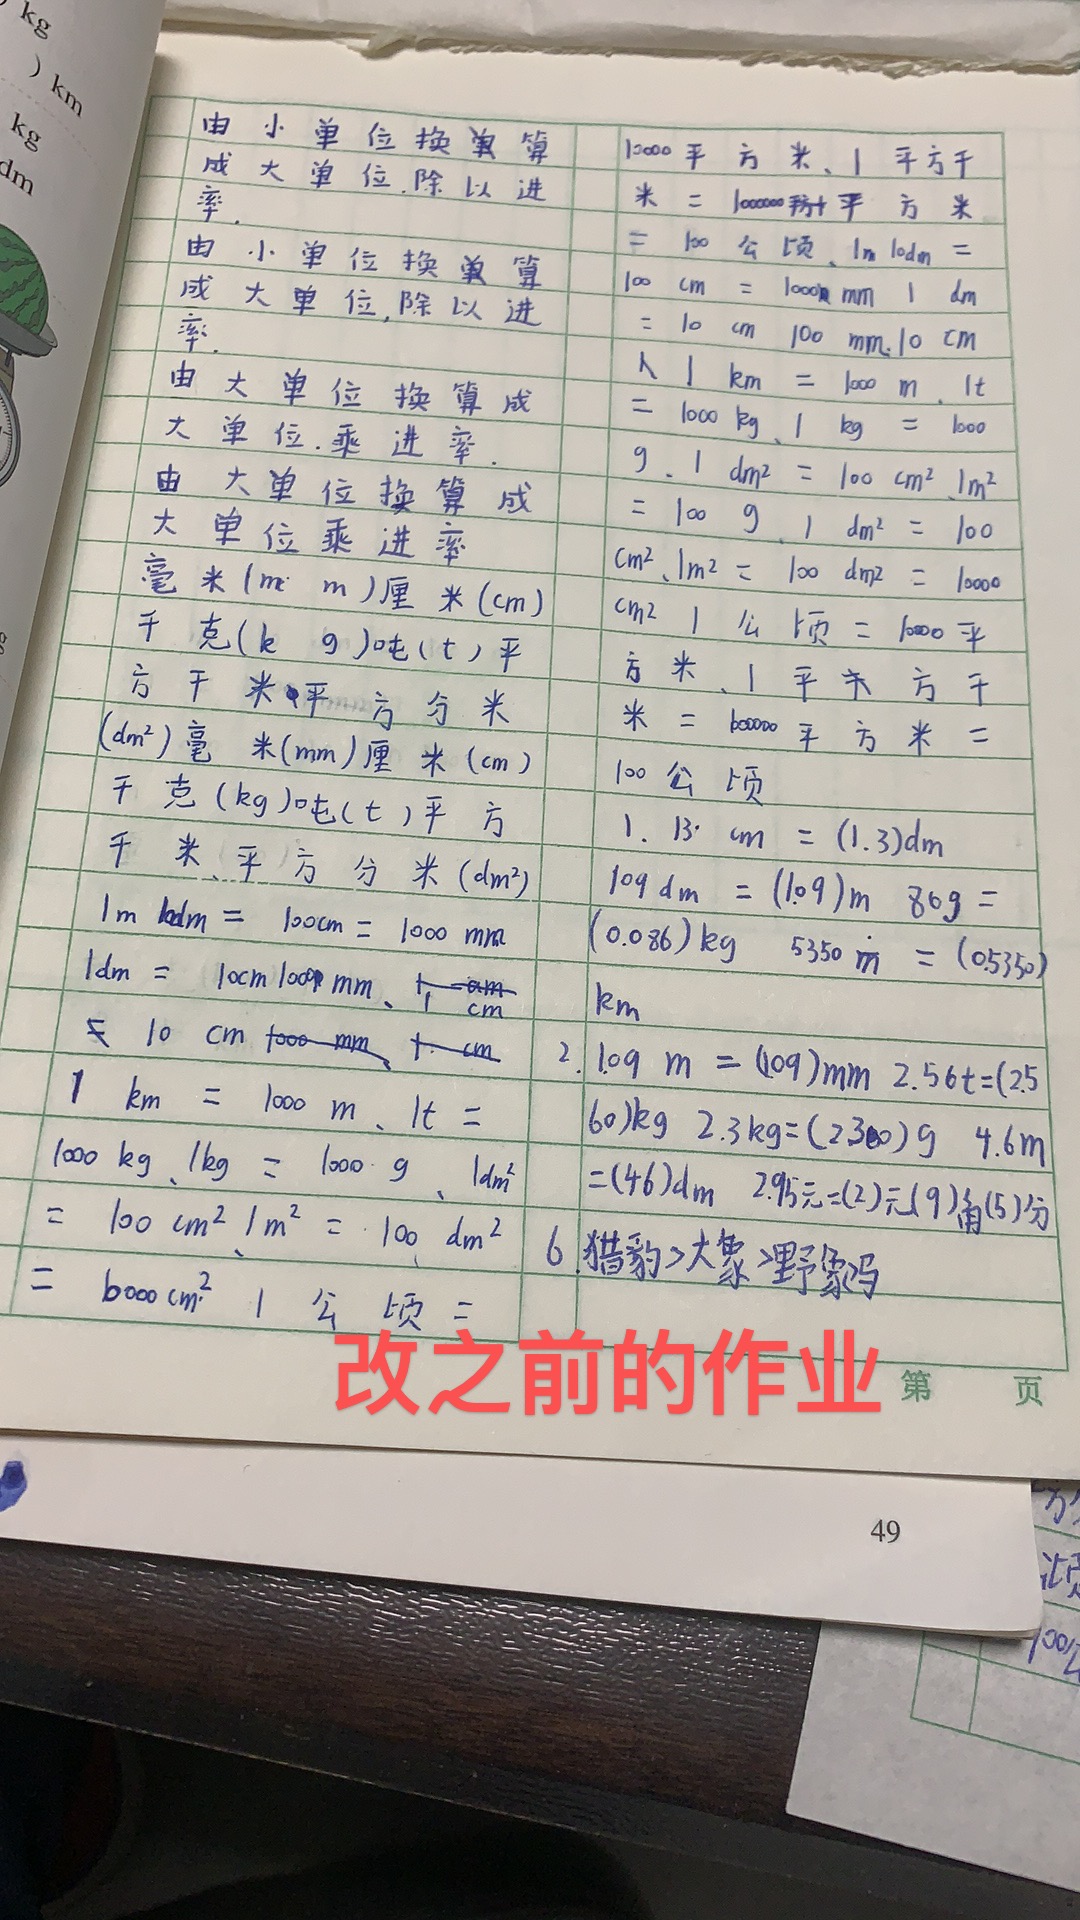 kg
) km
kg
dm
由小单位换算
成大单位.除以进
率.
由小单位换算
成大单位,除以进
率.
由大单位换算成
大单位.乘进率.
由大单位换算成
大单位乘进率
毫米(m m)厘米(cm)
千克(k g)吨(t)平
方千米平方分米
(dm²)毫米(mm)厘米(cm)
千克(kg)吨(t)平方
千米、平方分米(dm²)
1m 10dm = 100cm = 1000 mm
1dm = 10cm 100 mm、1 cm
= 10 cm
1 km = 1000 m、1t =
1000 kg、1kg = 1000 g、1dm²
= 100 cm²、1m² = 100 dm²
= 10000cm² 1公顷=
10000平方米、1平方千
米=1000000平方米
=100公顷、1m 10dm =
100 cm = 1000 mm 1 dm
= 10 cm 100 mm.10 cm
1 km = 1000 m、1t
= 1000 kg、1 kg = 1000
g、1 dm² = 100 cm²、1m²
= 100 g、1 dm² = 100
cm²、1m² = 100 dm² = 10000
cm² 1公顷=10000平
方米、1平方千
米=平方米=
100公顷
1. 13 cm = (1.3)dm
109 dm = (1.09)m 86g =
(0.086)kg 5350 m = (0.5350)
km
2. 1.09 m = (109)mm 2.56t=(25
60)kg 2.3kg=(2300)g 4.6m
=(46)dm 2.95元=(2)元(9)角(5)分
6.猎豹>大象>野象吗
改之前的作业
第 页
49